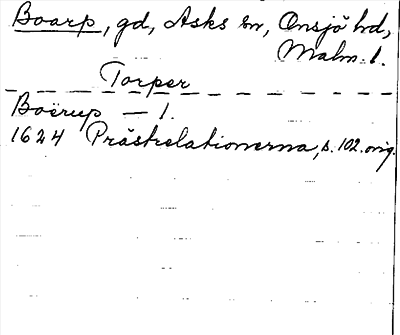 Boarp, gd, Asks sn, Onsjö hd,
Malm. l.
Torper
Boërup — 1.
1624 Prästrelationerna, s. 102. orig.